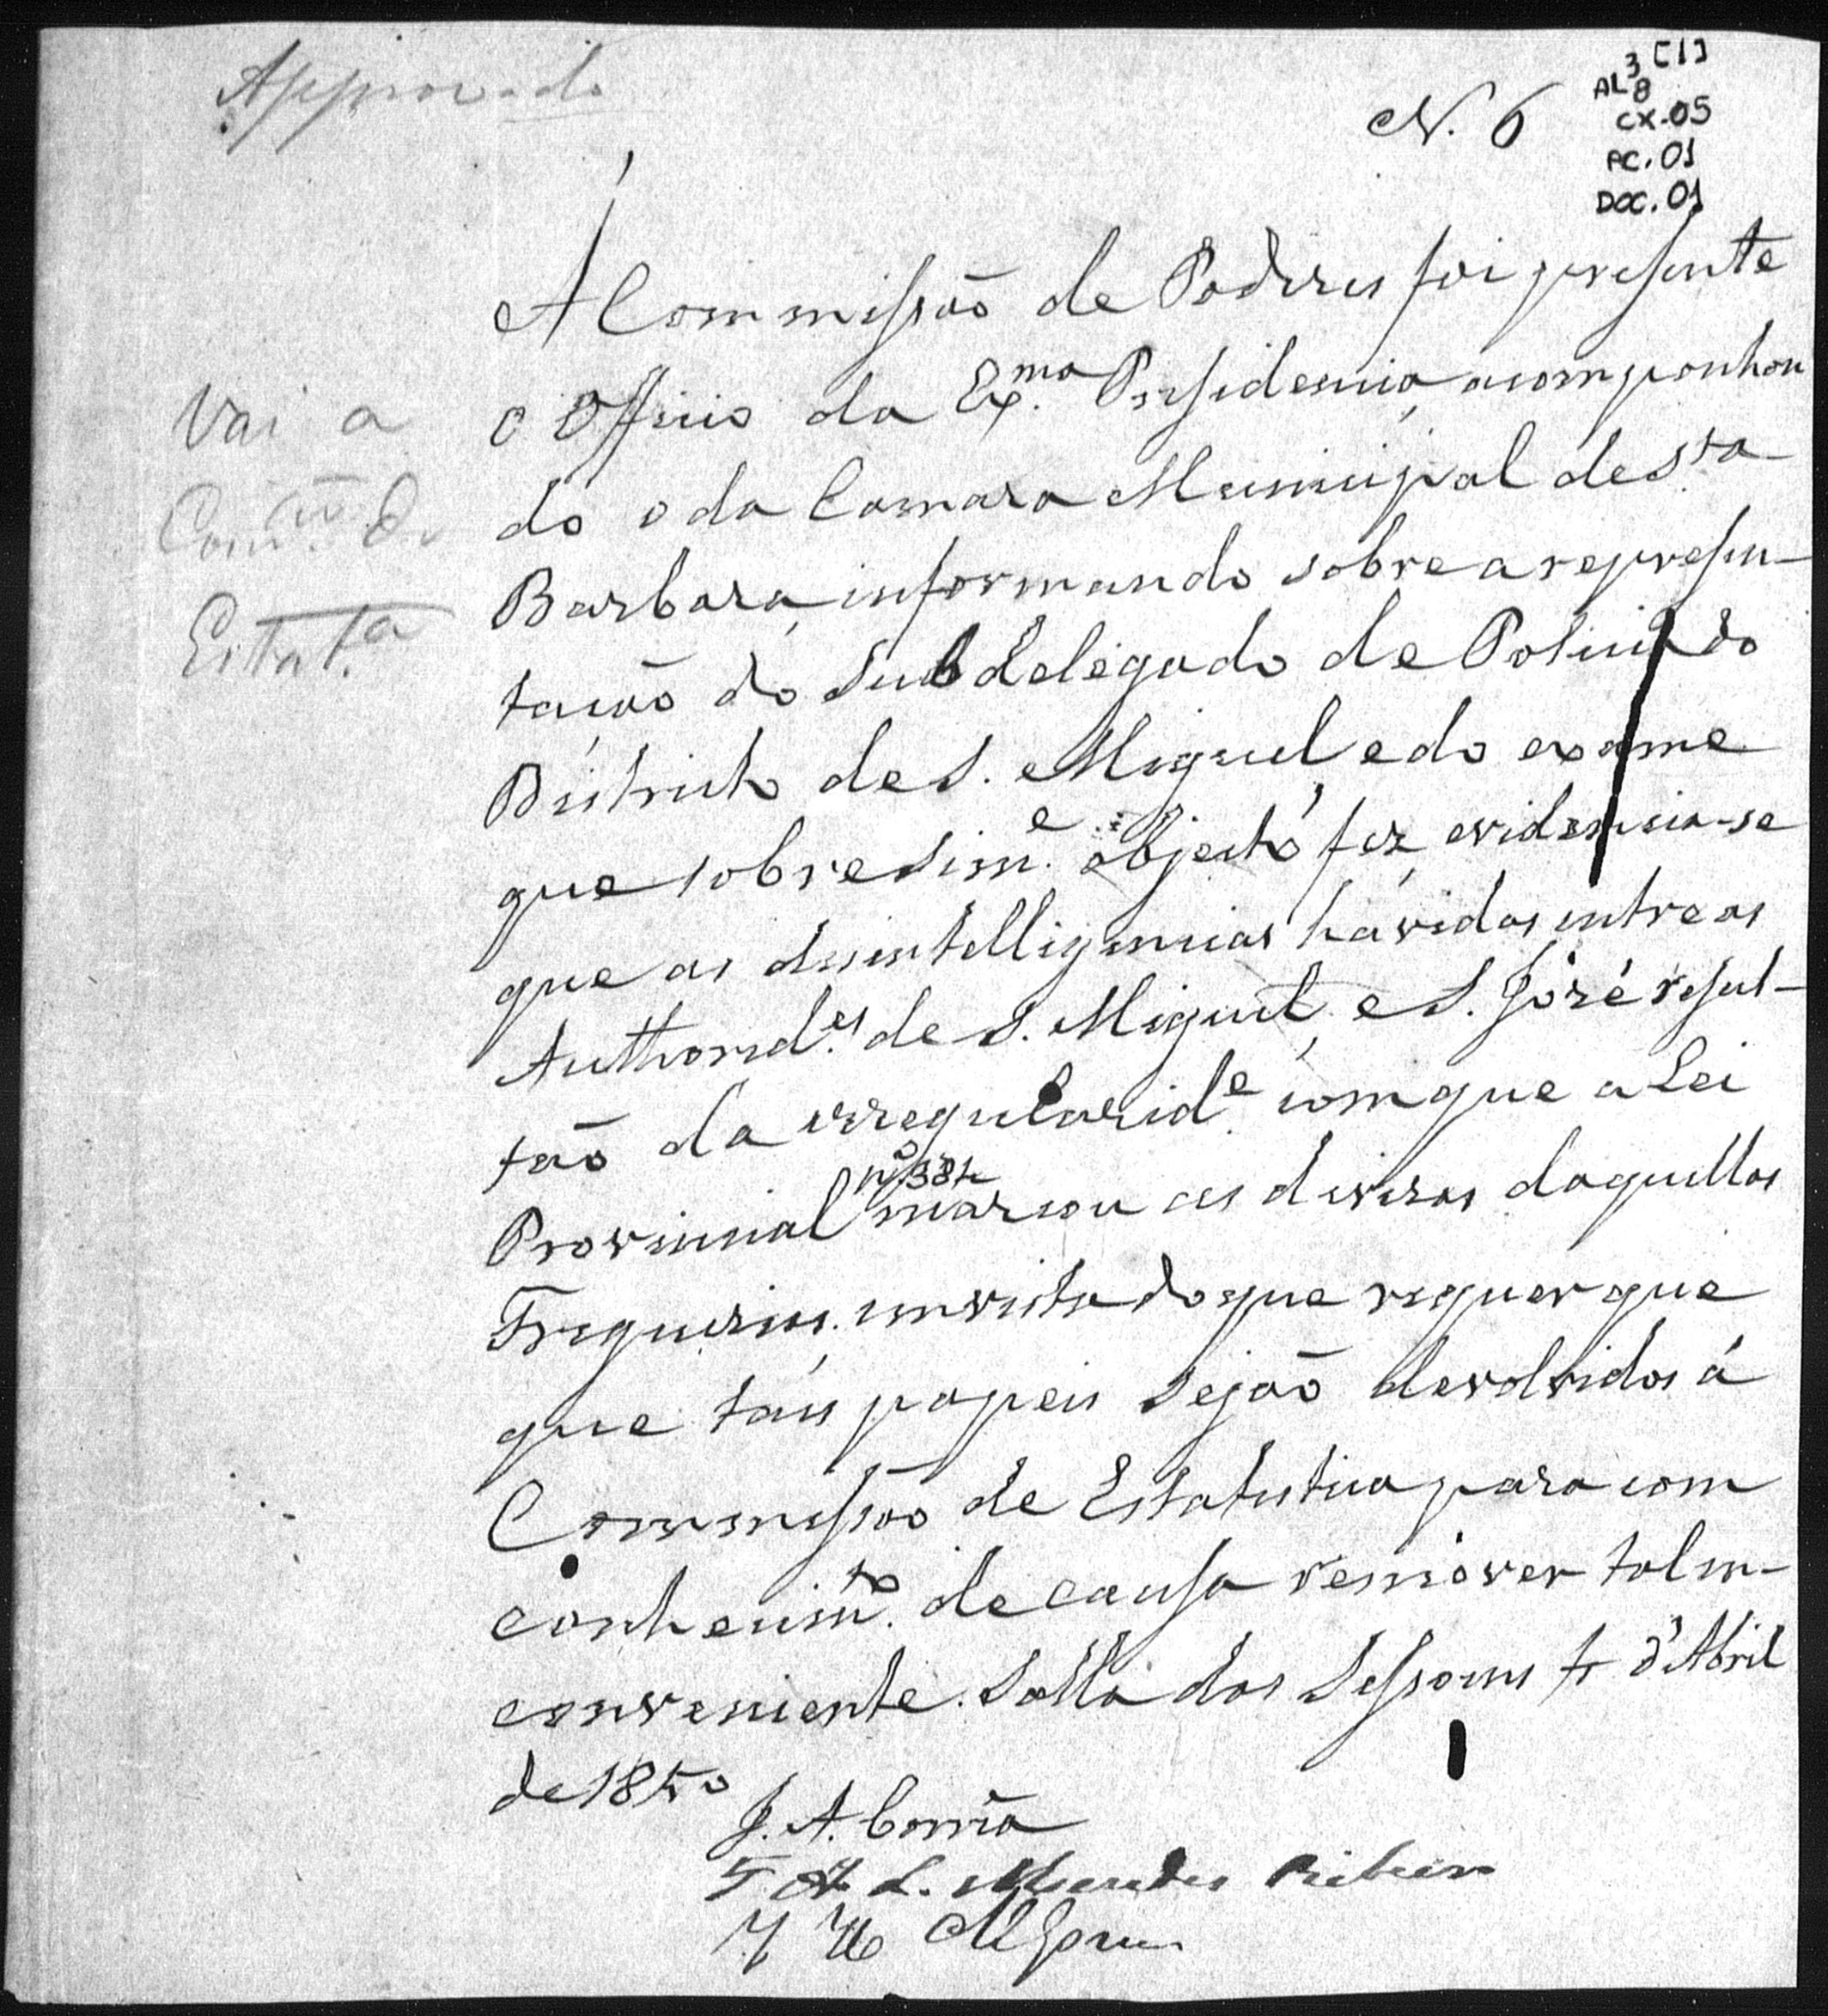 Approvado
N. 6
AL 3/8 [1]
CX-05
PC. 01
DOC. 01
Á Commissão de Poderes foi presente
o Officio da Ex.ma Presidencia, acompanhan
do o da Camara Municipal de S.ta
Barbara, informando sobre a represen-
tação do Subdelegado de Policia do
Districto de S. Miguel, e do exame
que sobre sim.e objecto fez, evidencia-se
que as desintelligencias havidas entre as
Authorid.es de S. Miguel, e S. José resul-
tão da irregularid.e com que a Lei
Provincial nº 384 marcou as divisas daquellas
Freguesias. em vista do que requer que
que táes papeis sejão devolvidos á
Commissão de Estatistica para com
conhecim.to de causa remover tal in-
conveniente. Salla das Sessoens 4 d'Abril
de 1850
J. A. Corrêa
L. Mendes Ribeiro
Vai a
Com.ão de
Estat.ca